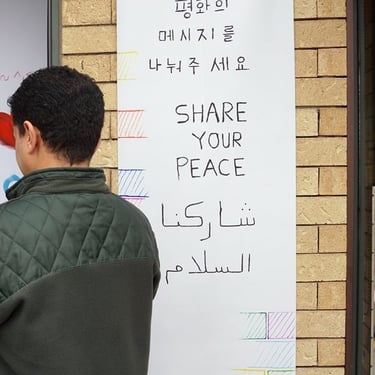 평화의
메시지를
나눠주세요
SHARE
YOUR
PEACE
شاركنا
السلام